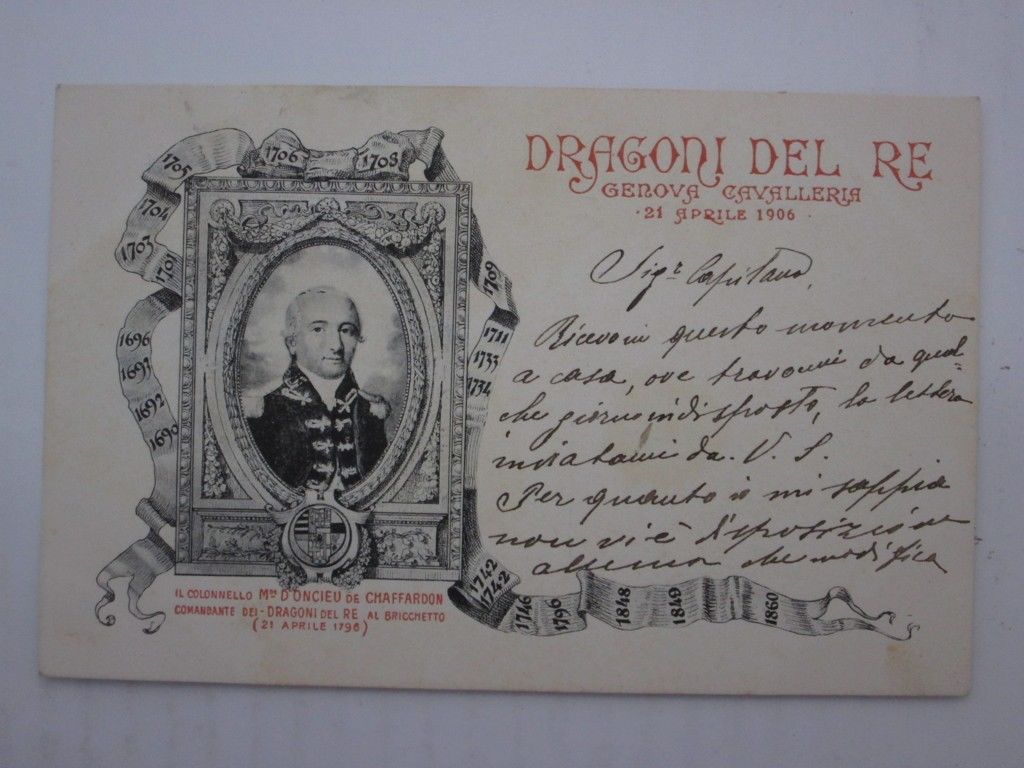 DRAGONI DEL RE
GENOVA CAVALLERIA
· 21 APRILE 1906 ·
1690
1692
1693
1696
1701
1703
1704
1705
1706
1708
1709
1711
1733
1734
1742
1742
1746
1796
1848
1849
1860
Sigr Capitano,
Ricevo in questo momento
a casa, ove trovomi da qual=
che giorno indisposto, la lettera
inviatami da V. S.
Per quanto io mi sappia
non vi è disposizione
alcuna che modifica
IL COLONNELLO Mse D'ONCIEU DE CHAFFARDON
COMANDANTE DEI - DRAGONI DEL RE AL BRICCHETTO
(21 APRILE 1796)